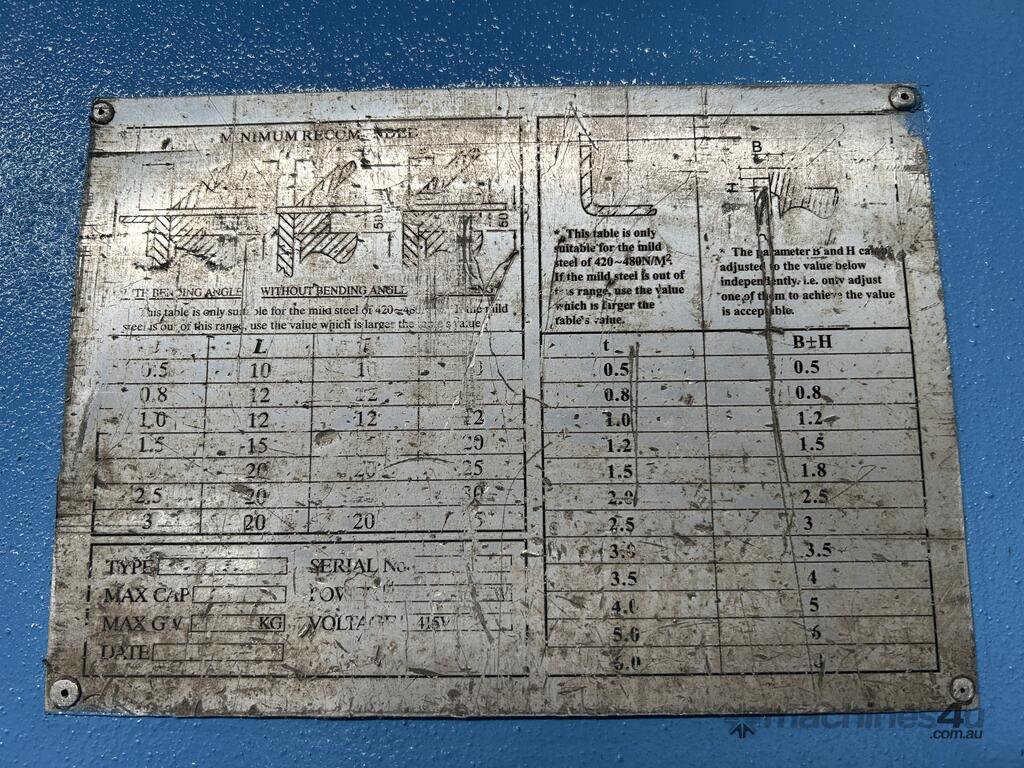 MINIMUM RECOM
50
50
BENDING ANGLE WITHOUT BENDING ANGLE
This table is only for the mild steel of 420~ mild
steel is out of this range, use the value which is larger the value
L
0.5 10
0.8 12
1.0 12 12 12
1.5 15 20
20 20 25
2.5 20
3 20 20
TYPE SERIAL No.
MAX CAP
MAX KG VOLTAGE 415V
DATE
B
H
* This table is only
suitable for the mild
steel of 420~480N/M².
If the mild steel is out of
this range, use the value
which is larger the
table's value.
* The parameter B and H can be
adjusted to the value below
independently. i.e. only adjust
one of them to achieve the value
is acceptable.
t B±H
0.5 0.5
0.8 0.8
1.0 1.2
1.2 1.5
1.5 1.8
2.0 2.5
2.5 3
3.5
3.5 4
4.0 5
5.0 6
machines4u
.com.au